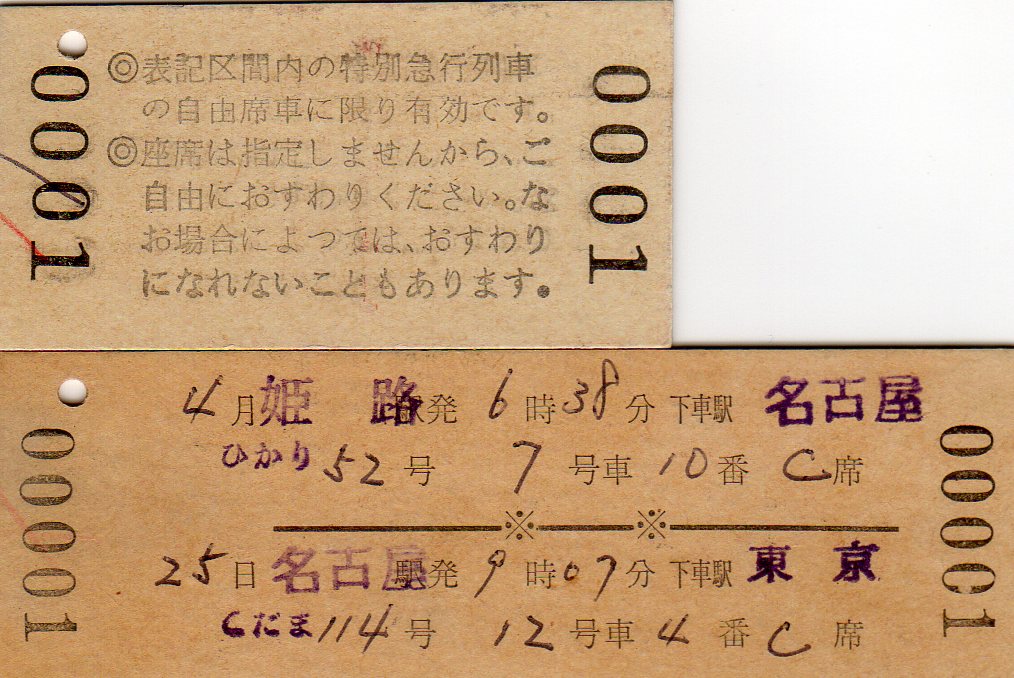 0001
◎表記区間内の特別急行列車
の自由席車に限り有効です。
◎座席は指定しませんから、ご
自由におすわりください。な
お場合によつては、おすわり
になれないこともあります。
0001
0001
4月姫路駅発 6時38分 下車駅 名古屋
ひかり52号 7号車 10番 C席
※ ※
25日 名古屋駅発 9時07分 下車駅 東京
こだま114号 12号車 4番 C席
0001